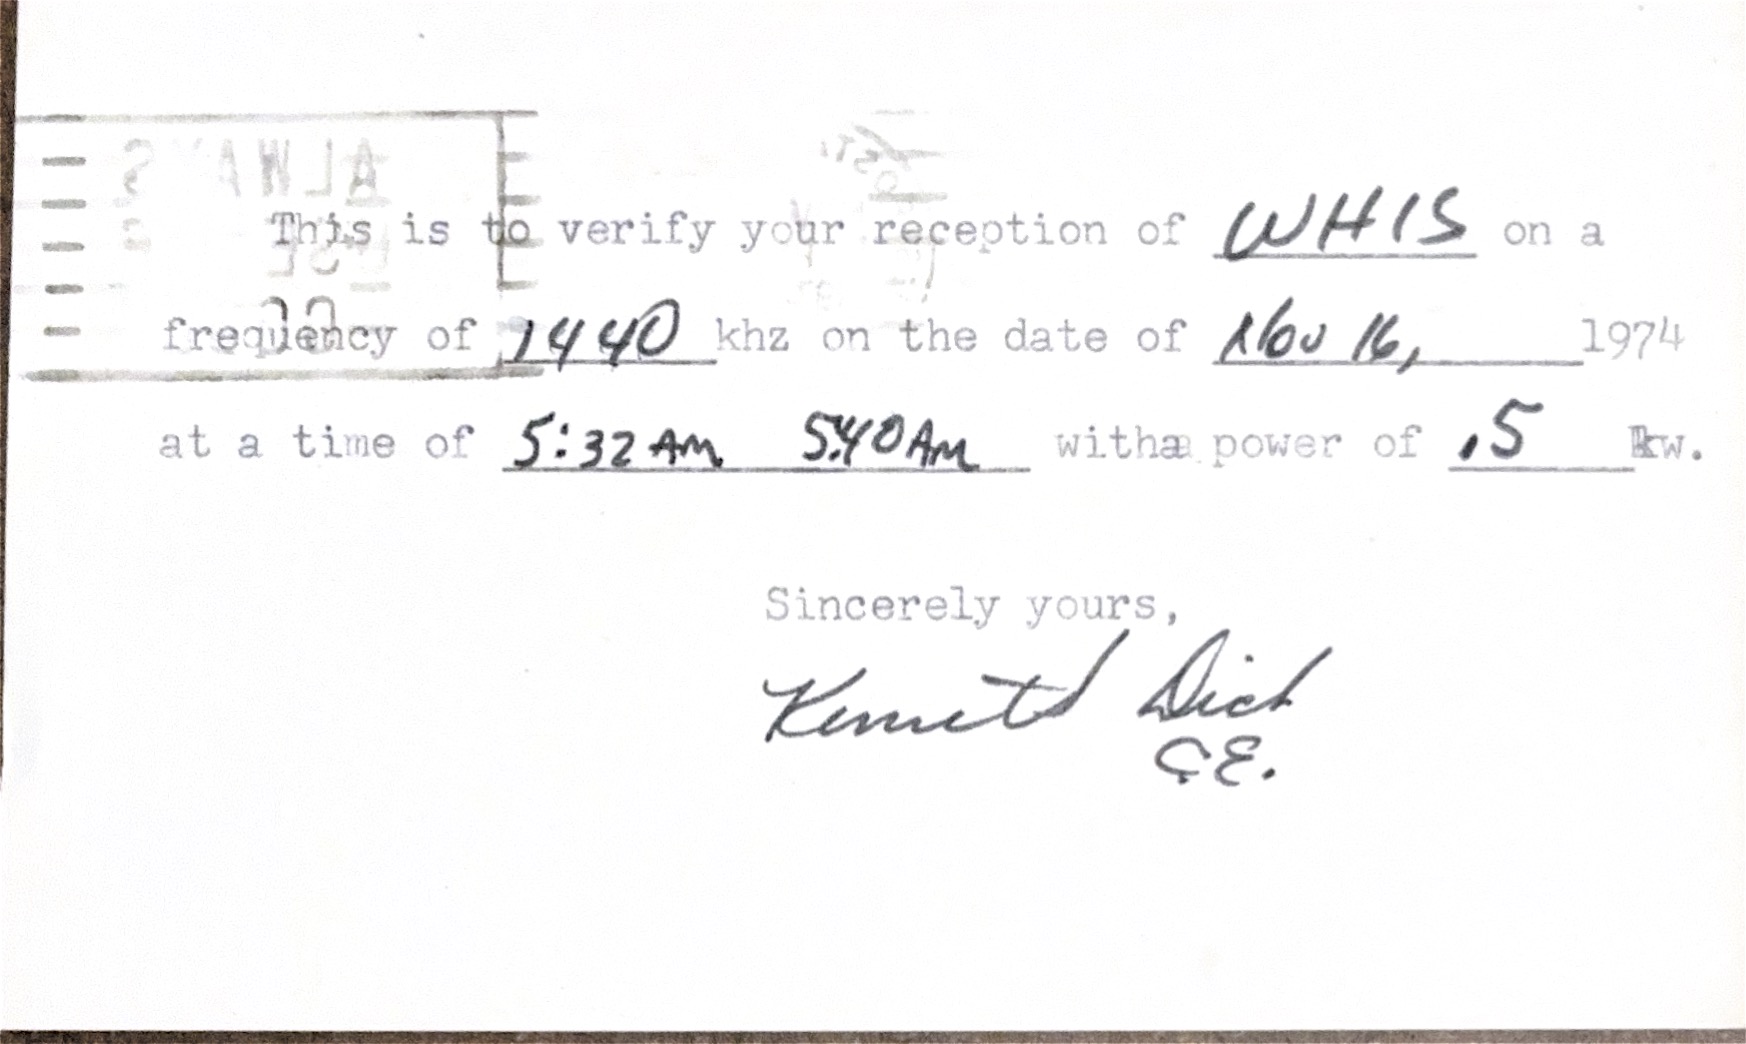 ALWAYS
This is to verify your reception of WHIS on a
frequency of 1440 khz on the date of Nov 16, 1974
at a time of 5:32 AM 5:40 AM witha power of .5 kw.
Sincerely yours,
Kenneth Dick
C.E.